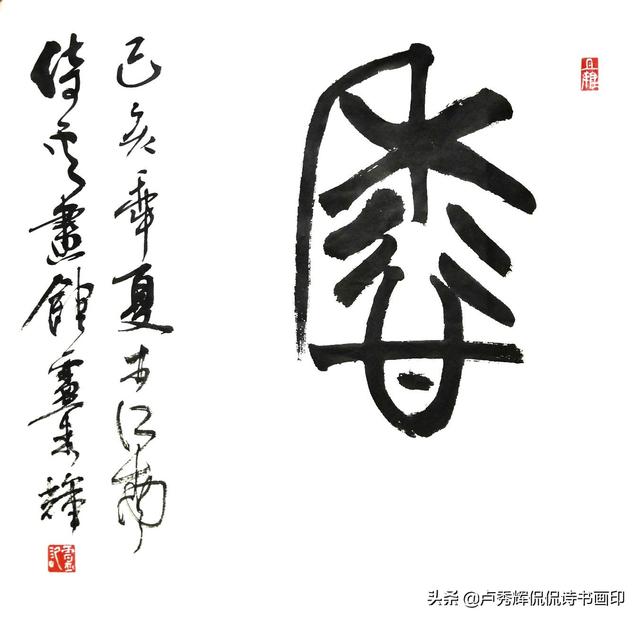 香
己亥年夏于江南
待云畫館盧秀輝
头条 @卢秀辉侃侃诗书画印